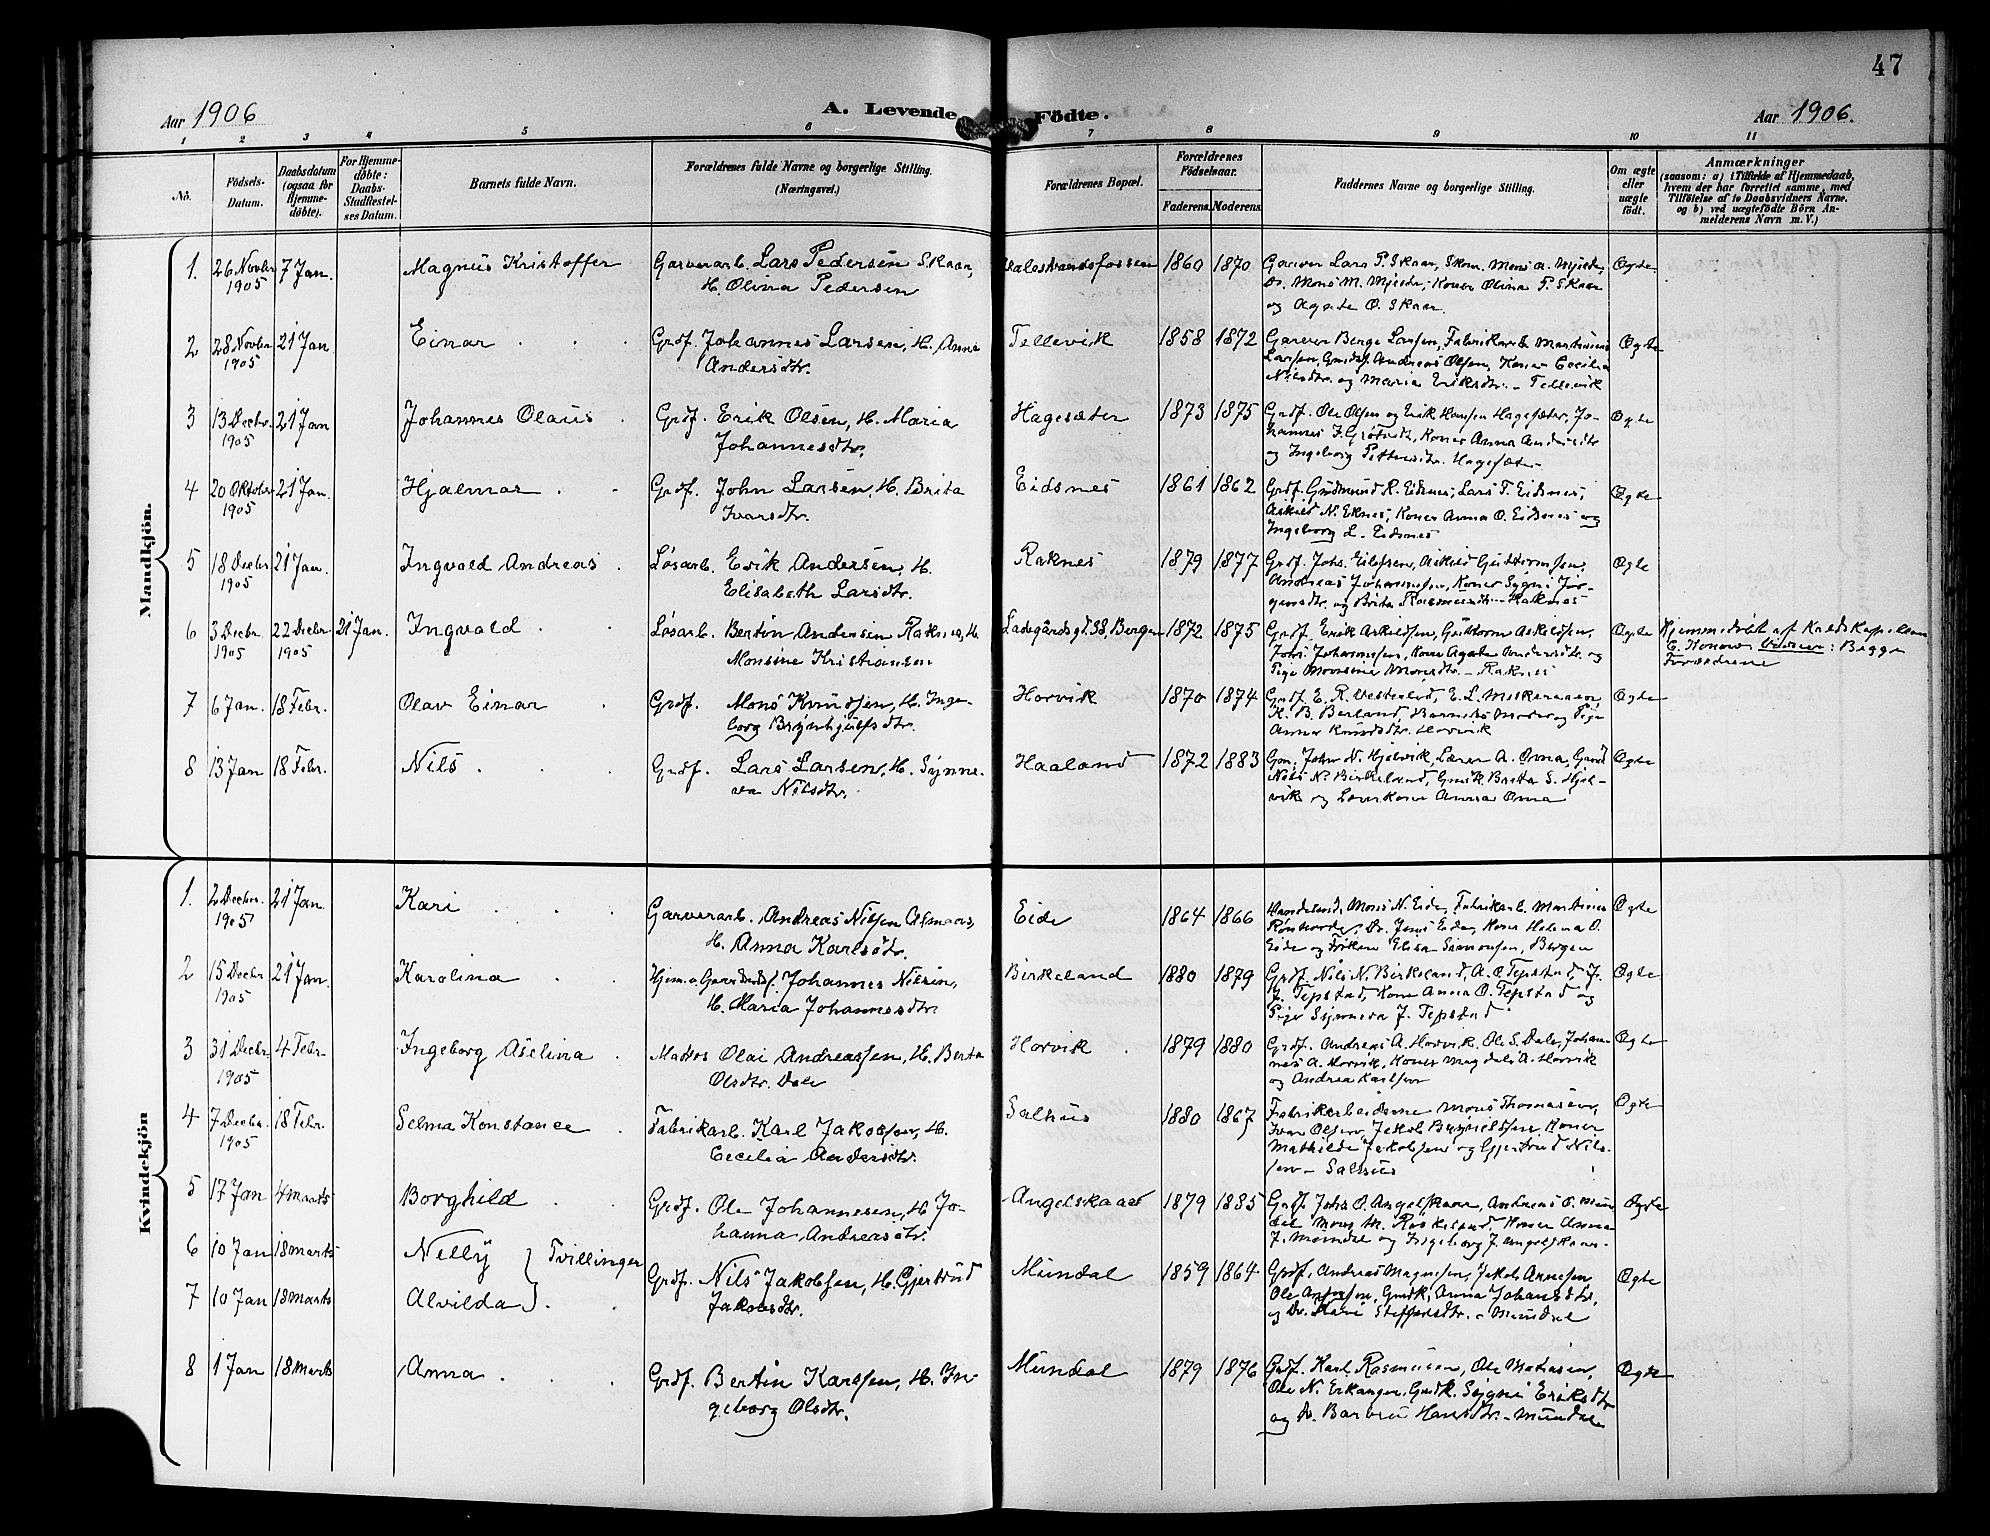 47
Aar 1906
A. Levende Födte.
Aar 1906.
1 2 3 4 5 6 7 8 9 10 11
Nö.
Födsels-Datum.
Daabsdatum (ogsaa for Hjemme-döbte).
For Hjemme-döbte: Daabs-Stadfæstel-ses Datum.
Barnets fulde Navn.
Forældrenes fulde Navne og borgerlige Stilling. (Næringsvei.)
Forældrenes Bopæl.
Forældrenes Födselsaar.
Faderens. Moderens.
Faddernes Navne og borgerlige Stilling.
Om ægte eller uægte födt.
Anmærkninger
(saasom: a) i Tilfælde af Hjemmedaab, hvem der har forrettet samme, med Tilföielse af to Daabsvidners Navne, og b) ved uægtefödte Börn An-melderens Navn m. V.)
Mandkjön.
1. 26 Novbr 1905 7 Jan. Magnus Kristoffer Garverarb. Lars Pedersen Skaar, H. Olina Pedersen 1860 1870 Garver Lars P. Skaar, Mons M. Koner Olina P. Skaar og Agate O. Skaar Ægte
2 28 Novbr 1905 21 Jan Einar Grdf. Johannes Larsen, H. Anna Andersdtr. Tellevik 1858 1872 Garver Berge Larsen, Fabrikarb Martinius Larsen, Andreas Olsen, Koner Cecilia Nilsdtr. og Maria Eriksdtr. - Tellevik Ægte
3 13 Decbr. 1905 21 Jan Johannes Olaus Grdf. Erik Olsen, H. Maria Johannesdtr. Hagesæter 1873 1875 Grdf. Ole Olsen og Erik Hansen Hagesæter, Johannes J. Koner Anna Andersdtr og Ingeborg Pettersdtr. Hagesæter Ægte
4 20 Oktober 1905 21 Jan. Hjalmar Grdf. John Larsen, H. Brita Ivarsdtr. Eidsnes 1861 1862 Grdf. Gudmund R. Eidsnes, Lars T. Eidsnes, Askild N. Eknes, Koner Anna O. Eidsnes og Ingeborg L. Eidsnes Ægte
5 18 Decbr 1905 21 Jan. Ingvald Andreas Løsarb. Erik Andersen, H. Elisabeth Larsdtr. Raknes 1879 1877 Grdf. Johs. Eilefsen, Askild Guttormsen, Andreas Johannessen, Koner Sygni Jørgensdtr. og Brita Rasmusdtr. - Raknes Ægte
6 3 Decbr. 1905 22 Decbr 1905 21 Jan. Ingvald Løsarb. Bertin Andersen Raknes, H. Monsine Kristiansen Ladegårdsgt. 58, Bergen 1872 1875 Grdf. Erik Askildsen, Guttorm Askildsen, Johs Johannessen, Kone Agate Andersdtr. og Pige Monsine Monsdtr. - Raknes Ægte Hjemmedøbt af Kaldskapellan C. Konow. Vidner: Begge Forældrene
7 6 Jan. 18 Febr. Olav Einar Grdf. Mons Knudsen, H. Ingeborg Brynhjulfsdtr. Horvik 1870 1874 Grdf. E. R. Vesterlid, E. L. H. B. Berland, Barnets Moder og Pige Anna Knudsdtr. Horvik Ægte
8 13 Jan 18 Febr. Nils Grdf. Lars Larsen, H. Synneva Nilsdtr. Haaland 1872 1883 John N. Hjelvik, Lærer A. Oma, Nils N. Birkeland, Gmdk. Brita S. Hjelvik og Lærerkone Anna Oma Ægte
Kvindekjön
1. 2 Decbr. 1905 21 Jan. Kari Garverarb. Andreas Nilsen H. Anna Karlsdtr. Eide 1864 1866 Mons N. Eide, Fabrikarb. Martinus Dr. Jens Eide, Kone Helena O. Eide og Frøken Elisa Simonsen, Bergen Ægte
2 15 Decbr 1905 21 Jan. Karolina Johannes Nilsen, H. Maria Johannesdtr. Birkeland 1880 1879 Grdf. Nils N. Birkeland, A. O. Tepstad, J. J. Tepstad, Kone Anna O. Tepstad og Pige Synneva J. Tepstad Ægte
3 31 Decbr 1905 4 Febr. Ingeborg Aselina Matros Olai Andreassen, H. Berta Olsdtr. Dale Horvik 1879 1880 Grdf. Andreas A. Horvik, Ole S. Dale, Johannes A. Horvik, Koner Magdela A. Horvik og Andrea Karlsen Ægte
4 7 Decbr. 1905 18 Febr. Selma Konstance Fabrikarb. Karl Jakobsen, H. Cecilia Andersdtr. Salhus 1880 1867 Fabrikarbeiderne Mons Thomassen, Ivar Olsen, Jakob Koner Mathilde Jakobsen og Gjertrud Nilsen - Salhus Ægte
5 17 Jan 4 Marts Borghild Grdf. Ole Johannesen, H. Johanna Andersdtr. Angelskaar 1879 1885 Grdf. Johs O. Angelskaar, Andreas O. Mundal, Mons M. Røskeland, Koner Anna J. Mundal og Ingeborg J. Angelskaar. Ægte
6 10 Jan 18 Marts Nelly } Tvillinger
7 10 Jan 18 Marts Alvilda } Grdf. Nils Jakobsen, H. Gjertrud Jakobsdtr. Mundal 1859 1864 Grdf. Andreas Magnussen, Jakob Arnesen, Ole Gmdk. Anna Johansdtr, og Dr. Kari Steffensdtr. - Mundal Ægte
8 1 Jan 18 Marts Anna Grdf. Bertin Karlsen, H. Ingeborg Olsdtr. Mundal 1879 1876 Grdf. Karl Rasmussen, Ole Mathisen, Ole N. Erkanger, Gmdk. Sygni Eriksdtr og Dr. Barbru Hansdtr. - Mundal Ægte